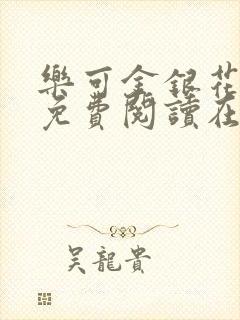 樂可金銀花
免費閱讀在
吴龍貴